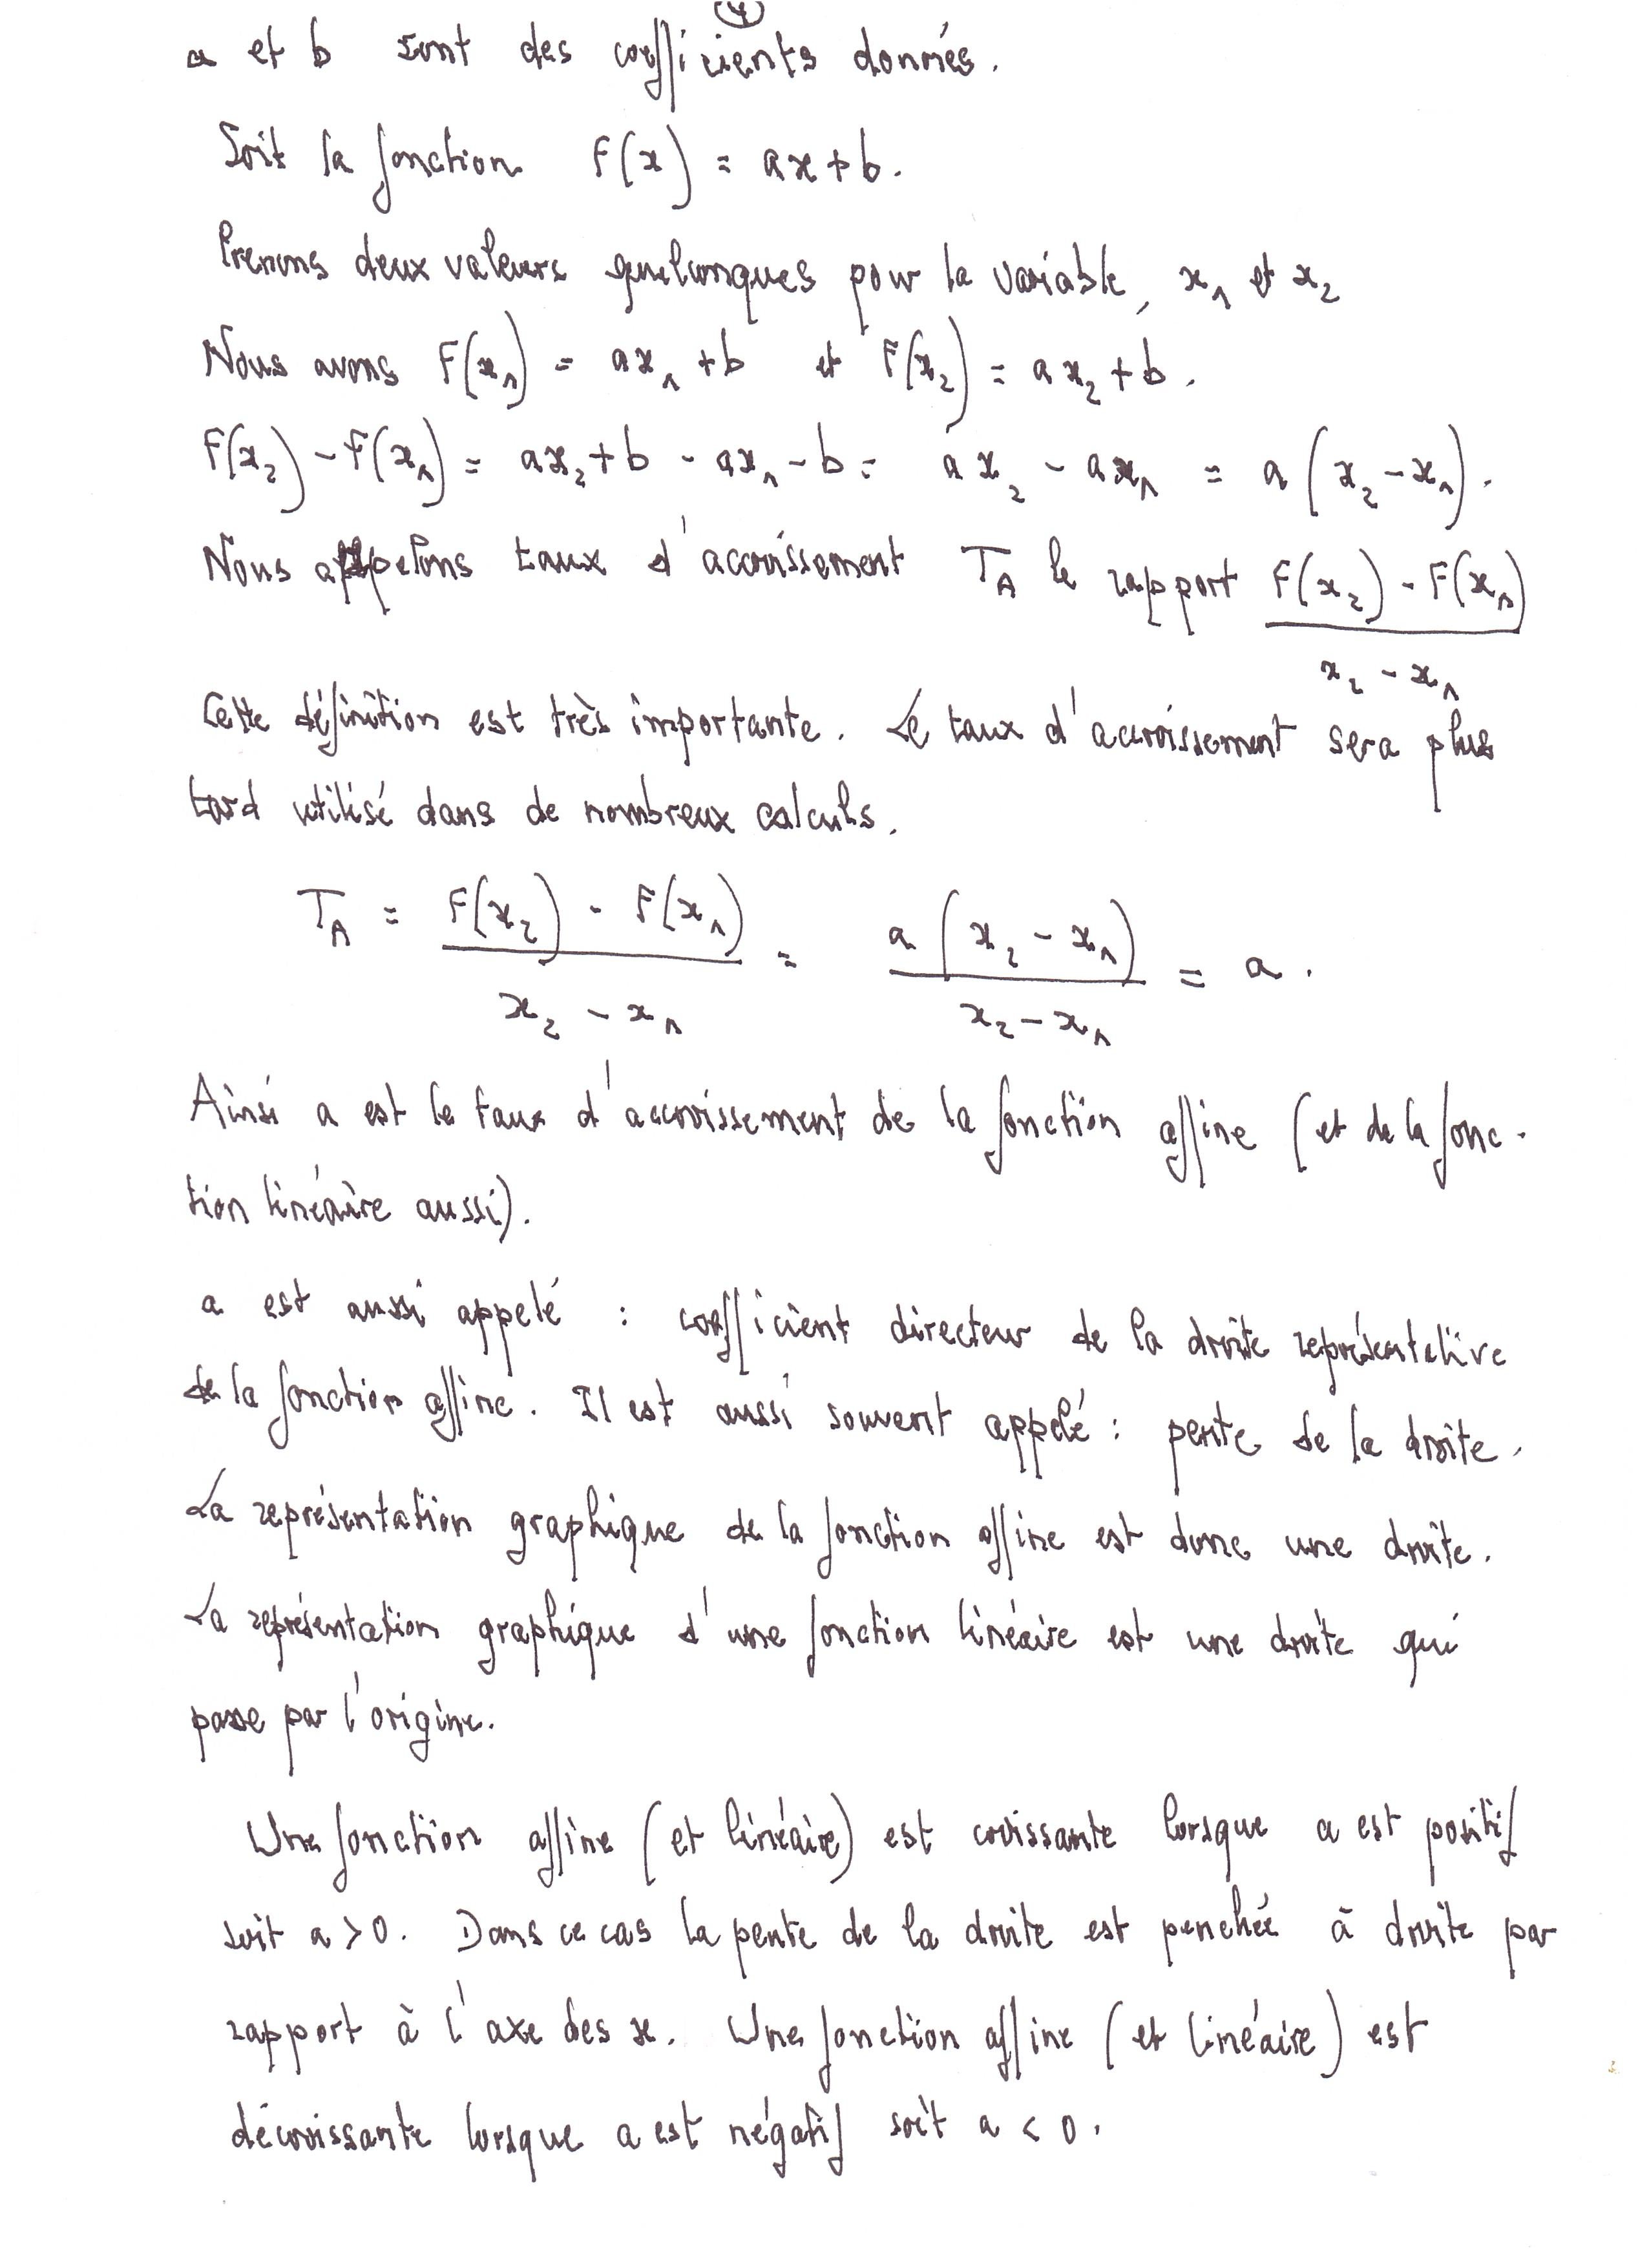 4
a et b sont des coefficients donnés.
Soit la fonction F(x) = ax+b.
Prenons deux valeurs quelconques pour la variable, x₁ et x₂
Nous avons F(x₁) = ax₁ + b et F(x₂) = ax₂ + b.
F(x₂) - F(x₁) = ax₂ + b - ax₁ - b = ax₂ - ax₁ = a(x₂ - x₁).
Nous appelons taux d'accroissement T_A le rapport F(x₂) - F(x₁)
x₂ - x₁
Cette définition est très importante. Le taux d'accroissement sera plus
tard utilisé dans de nombreux calculs.
T_A = F(x₂) - F(x₁) / x₂ - x₁ = a(x₂ - x₁) / x₂ - x₁ = a.
Ainsi a est le taux d'accroissement de la fonction affine (et de la fonc-
tion linéaire aussi).
a est aussi appelé : coefficient directeur de la droite représentative
de la fonction affine. Il est aussi souvent appelé : pente de la droite.
La représentation graphique de la fonction affine est donc une droite.
La représentation graphique d'une fonction linéaire est une droite qui
passe par l'origine.
Une fonction affine (et linéaire) est croissante lorsque a est positif
soit a > 0. Dans ce cas la pente de la droite est penchée à droite par
rapport à l'axe des x. Une fonction affine (et linéaire) est
décroissante lorsque a est négatif soit a < 0.